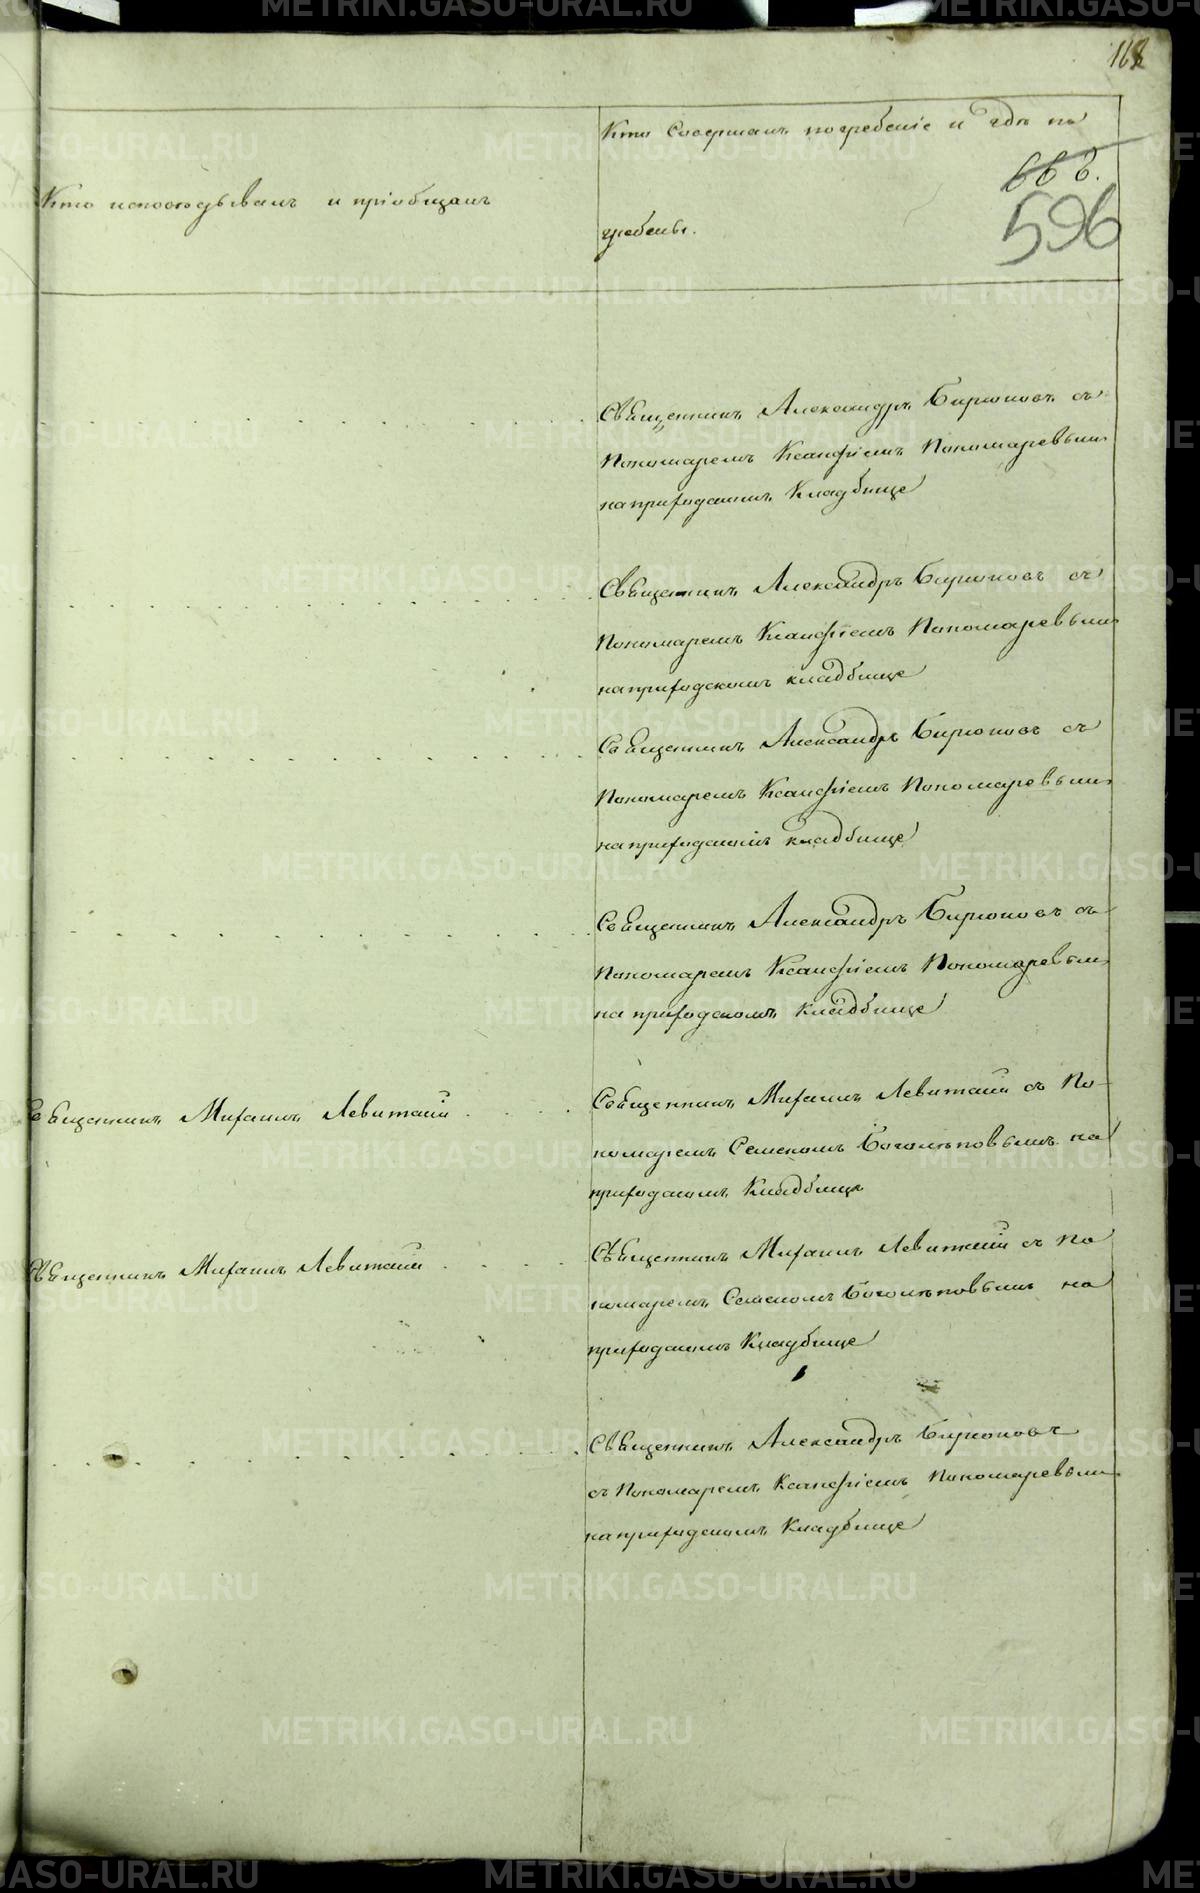 168
Кто совершалъ погребеніе и гдѣ по
666.
596
Кто исповѣдывалъ и пріобщалъ
гребены.
Священникъ Александръ Бирюковъ съ
Пономаремъ Ксанфіемъ Пономаревымъ
на приходскомъ кладбище
Священникъ Александръ Бирюковъ съ
Пономаремъ Ксанфіемъ Пономаревымъ
на приходскомъ кладбище
Священникъ Александръ Бирюковъ съ
Пономаремъ Ксанфіемъ Пономаревымъ
на приходскомъ кладбище
Священникъ Александръ Бирюковъ съ
Пономаремъ Ксанфіемъ Пономаревымъ
на приходскомъ кладбище
Священникъ Михаилъ Левитскій
Священникъ Михаилъ Левитскій съ По-
номаремъ Семеномъ Боголѣповымъ на
приходскомъ Кладбище
Священникъ Михаилъ Левитскій
Священникъ Михаилъ Левитскій съ По
номаремъ Семеномъ Боголѣповымъ на
приходскомъ Кладбище
Священникъ Александръ Бирюковъ
съ Пономаремъ Ксанфіемъ Пономаревымъ
на приходскомъ Кладбище
METRIKI.GASO-URAL.RU